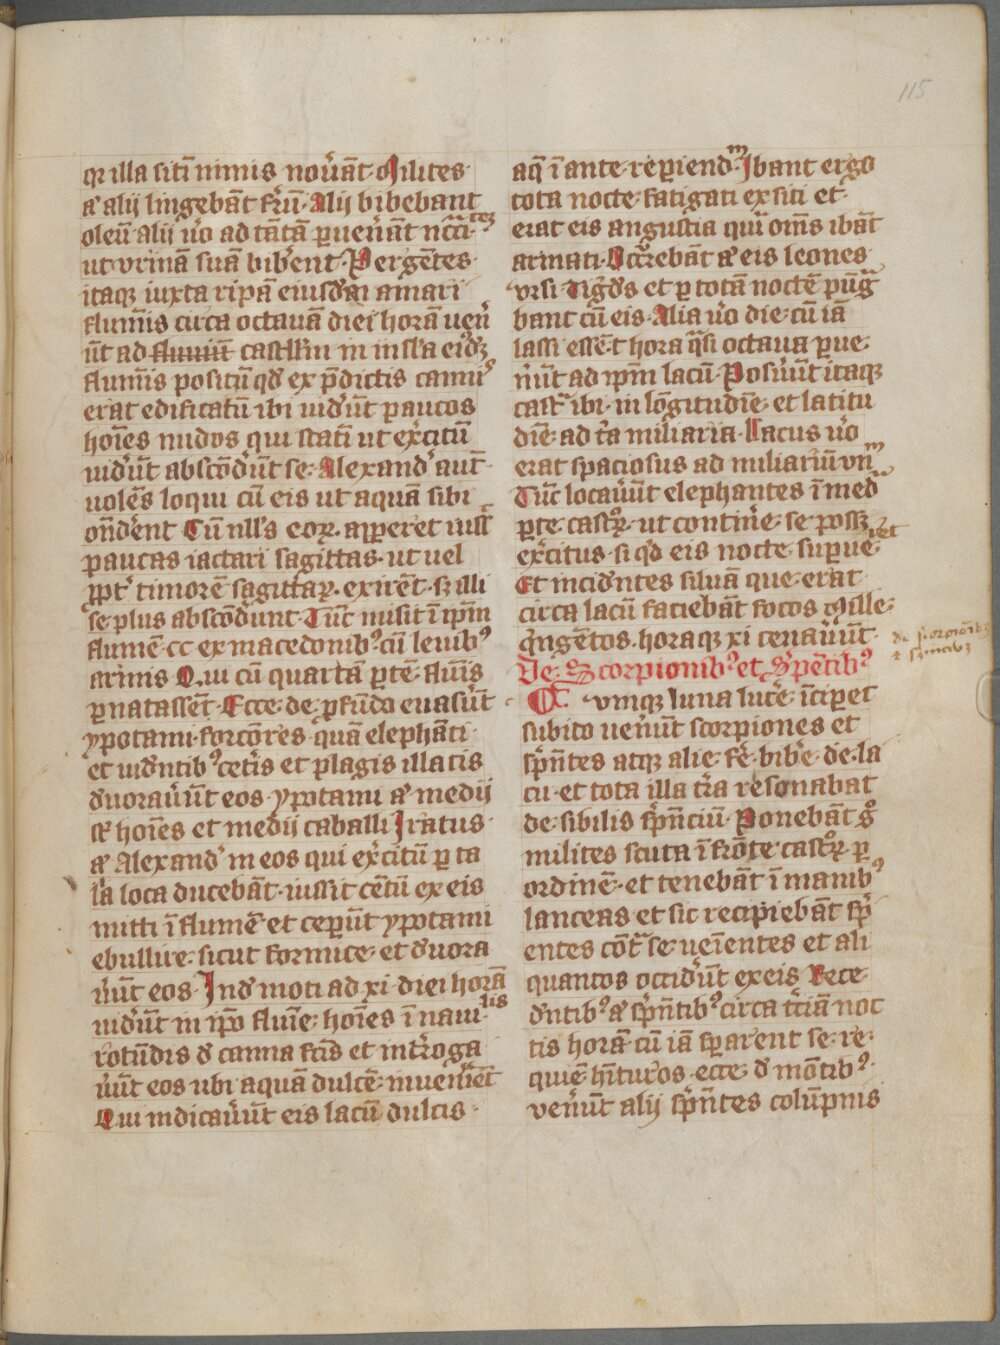 115
qr illa sitī nimis nov̄ant Milites
aͤ alij lingebāt fr̄ū Alij bibebant
oleū alij v̄o ad tātā ꝑuen̄ant nc̄c̄itez
ut vrinā suā bib̄ent Pergētes
itaqꝫ iuxta ripā eiusdm̄ amari
flum̄is circa octauā diei horā uen̄
ūt ad flumiū castellm̄ in insl̄a eidꝫ
flum̄is positū qd̄ ex p̄dictis cannis
erat edificatū ibi uid̄ūt paucos
hoīes nudos qui statī ut ex̄citū
uid̄ūt abscōd̄ūt se Alexand̓ aut̄
uolēs loqui cū eis ut aquā sibi
on̄d̄ent Cū nll̓s eoꝝ apperet iuss̄
paucas iactari sagittas ut uel
ꝓpt̓ timorē sagittaꝝ exirēt sꝫ illi
se plus abscōd̄unt Tūc misit ī ip̄m
flumē cc ex macedonibꝰ cū leuibꝰ
armis Qui cū quartā ꝑtē flūis
ꝑnatassēt Ecce de ꝓfūdo euasūt
ypotami forcōres quā elephāti
et uid̄ntibꝰ cet̄is et plagis illatis
d̓uorav̄ūt eos ypotami aͤ medij
sͤ hoīes et medij caballi Iratus
aͤ Alexand̓ in eos qui ex̄citū ꝑ ta
lia loca ducebāt iussit cētū ex eis
mitti ī flumē et ceperūt ypotami
ebullire sicut formice et d̓uora
v̄ūt eos Ind̓ moti ad xi diei horā
uid̄ūt in ip̄o fluīe hoīes ī naui lis
rotūdis d̓ canna fc̄is et int̄roga
v̄ūt eos ubi aquā dulcē inuen̄iēt
Qui indicav̄ūt eis lacū dulcis
aq̄ ī ante reperiend m Ibant ergo
tota nocte fatigati ex siti et
erat eis angustia quī om̄s ibāt
armati Occ̄rebāt aͤ eis leones
vrsi Tig̓d̓s et ꝑ totā noctē pūg̓
bant cū eis Alia v̄o die cū iā
lassi essēt hora q̄si octaua ꝑue
n̄ūt ad ip̄m lacū Posūūt itaqꝫ
cast̓ ibi in lōgitudīe et latitu
dīe ad t̄a miliaria Lacus v̄o
erat spaciosus ad miliariū vn̄ m
Tūc locav̄ūt elephantes ī med̓
ꝑte castꝝ ut continē se possꝫ
ex̄citus si qd̓ eis nocte suꝑue iret
Et incid̄ntes siluā que erat
circa lacū faciebāt focos Mille
q̓ngētos horaqꝫ xi cenav̄ūt
De Scorpionibꝰ et S̓pētibꝰ
de scorpionibꝫ
Cvmqꝫ luna lucē īciperet
subito uen̄ūt scorpiones et
sp̄n̄tes atqꝫ alie fē bib̄e de la
cu et tota illa t̄ra resonabat
de sibilis sp̄n̄ciū Ponebāt g̓
milites scuta ī frōte castꝝ ꝑ
ordinē et tenebāt ī manibꝰ
lanceas et sic recipiebāt sp̄
entes cōt̓ se ueīentes et ali
quantos occid̄ūt ex eis Rece
d̄ntibꝰ aͤ sp̄n̄tibꝰ circa t̄ciā noc
tis horā cū iā sp̄arent se re
quiē h̄ituros ecce d̓ mōtibꝰ
ven̄ūt alij sp̄n̄tes colūpnis